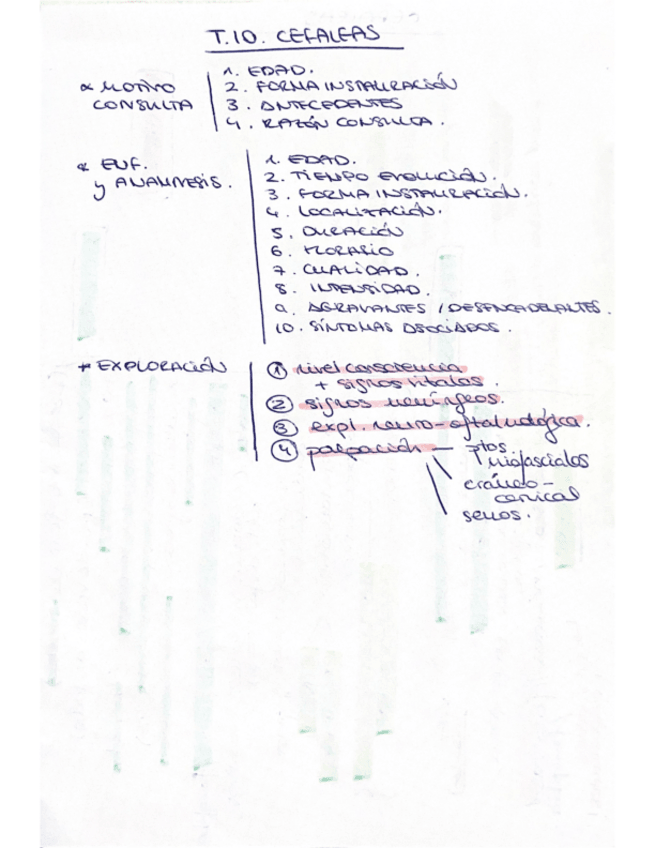 T.10. CEFALEAS
* MOTIVO CONSULTA
1. EDAD.
2. FORMA INSTAURACIÓN
3. ANTECEDENTES
4. RAZÓN CONSULTA.
* ENF. y ANAMNESIS.
1. EDAD.
2. TIEMPO EVOLUCIÓN.
3. FORMA INSTAURACIÓN.
4. LOCALIZACIÓN.
5. DURACIÓN
6. HORARIO
7. CUALIDAD.
8. INTENSIDAD.
9. AGRAVANTES / DESENCADENANTES.
10. SÍNTOMAS ASOCIADOS.
* EXPLORACIÓN
① nivel consciencia
+ signos vitales.
② signos meníngeos.
③ expl. neuro-oftalmológica.
④ palpación — ptos
miofasciales
cráneo-
cervical
senos.